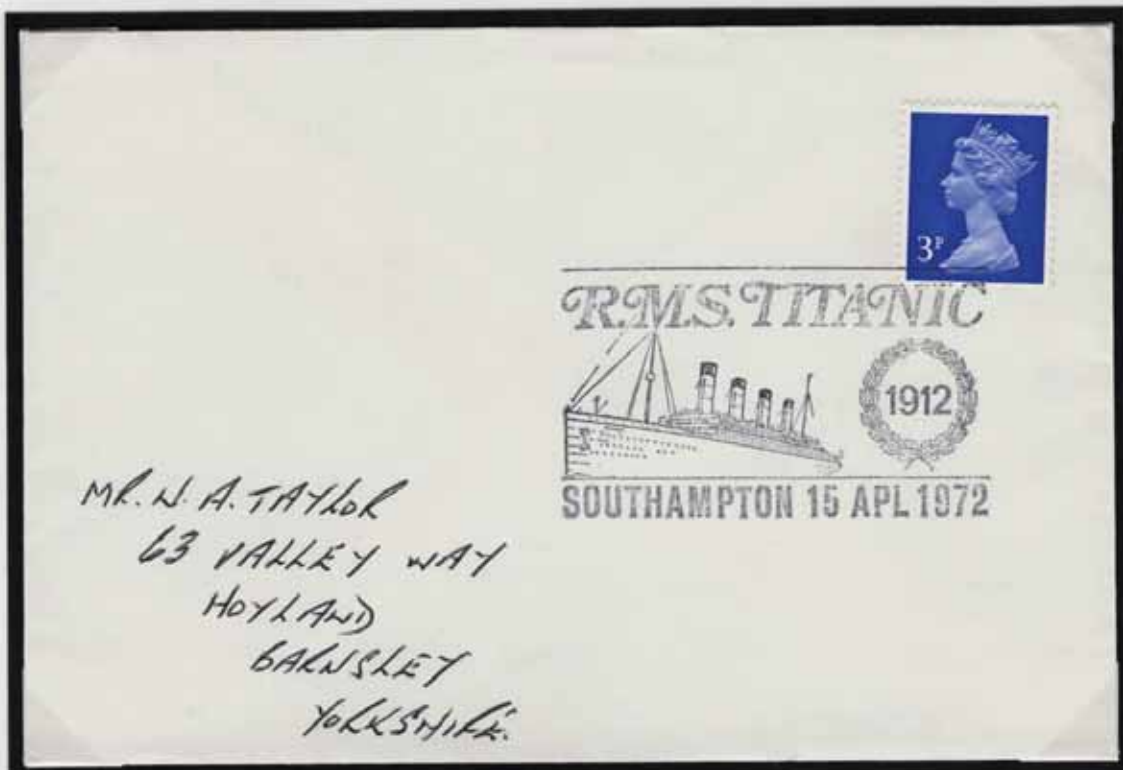 3P
R.M.S. TITANIC
1912
SOUTHAMPTON 15 APL 1972
MR. N. A. TAYLOR
63 VALLEY WAY
HOYLAND
BARNSLEY
YORKSHIRE.